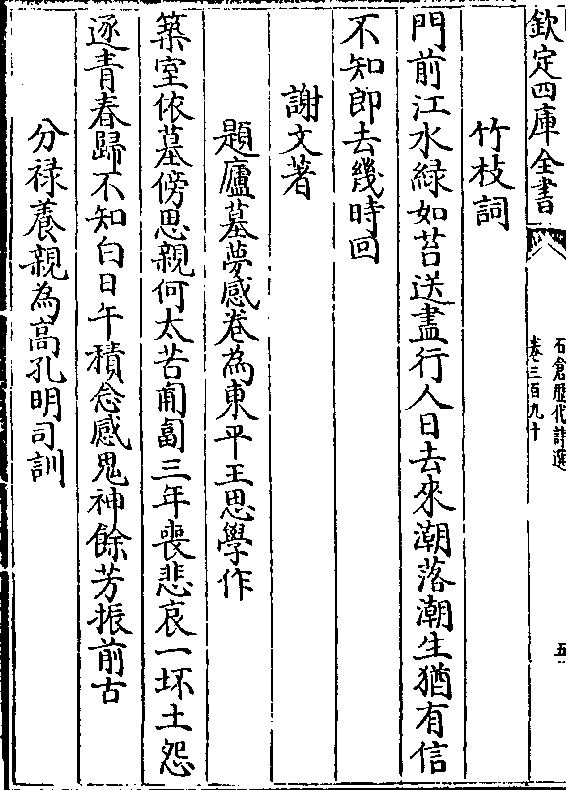 欽定四庫全書
石倉歷代詩選
卷三百九十
五
竹枝詞
門前江水緑如苔送盡行人日去來潮落潮生猶有信
不知郎去幾時回
謝文著
題廬墓夢感卷為東平王思學作
築室依墓傍思親何太苦匍匐三年喪悲哀一坏土怨
逐青春歸不知白日午積念感鬼神餘芳振前古
分禄養親為高孔明司訓